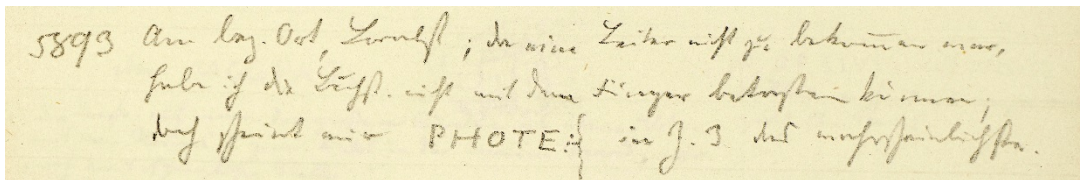 5893 Am bez. Ort, ; da eine Leiter nicht zu bekommen war,
habe ich die Buchst. nicht mit dem Finger betasten können;
doch scheint mir PHOTE in Z. 3 das wahrscheinlichste.